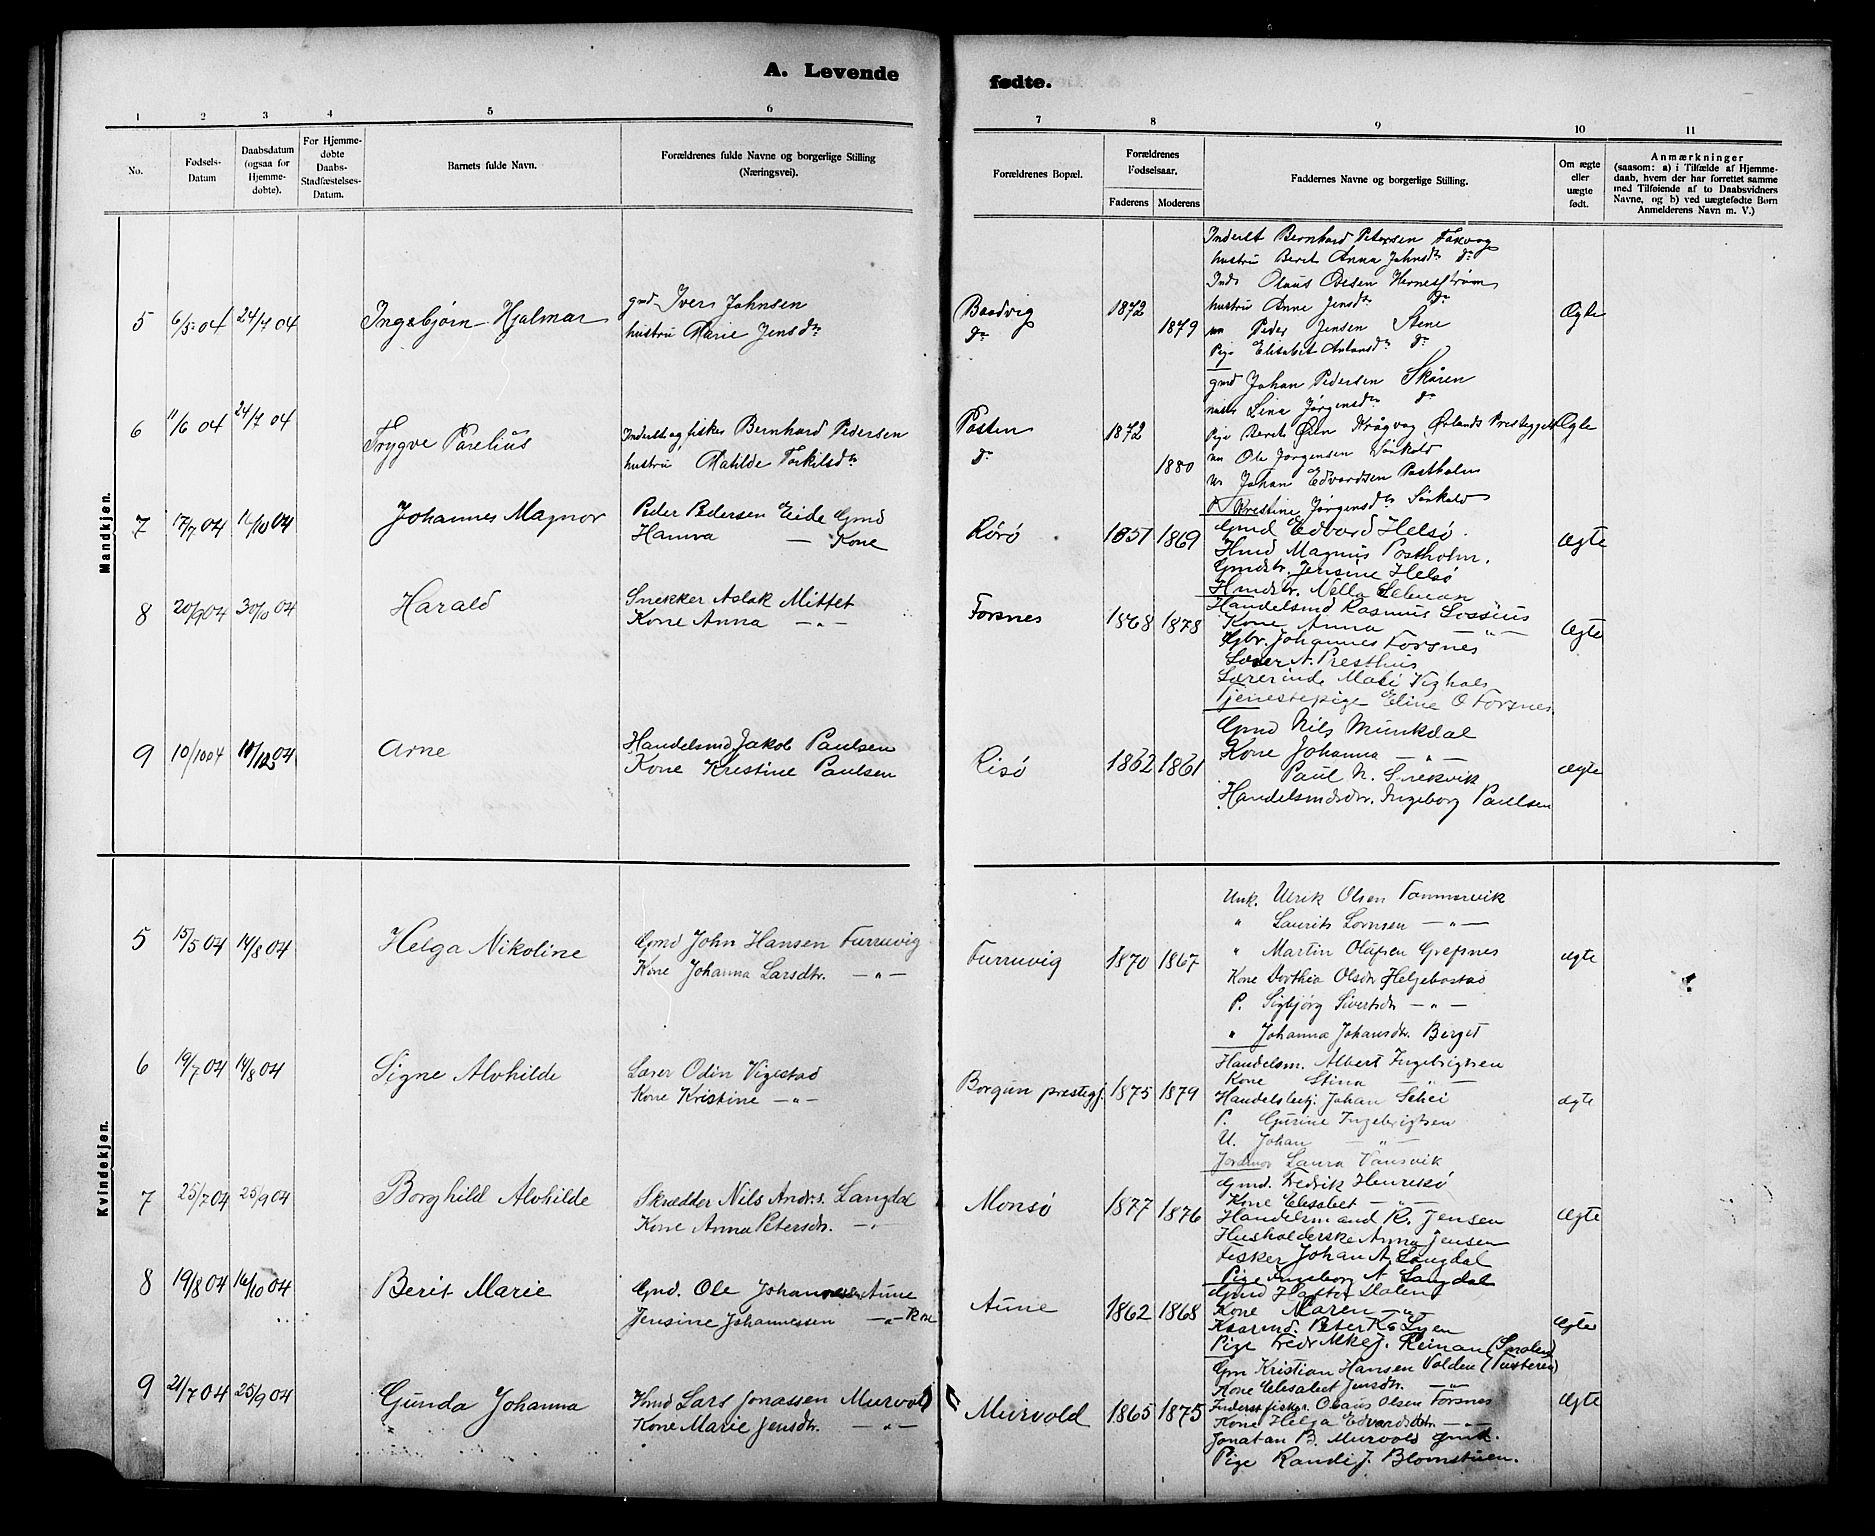 A. Levende fødte.
1 2 3 4 5 6 7 8 9 10 11
No.
Fødsels-Datum
Daabsdatum (ogsaa for Hjemme-døbte).
For Hjemme-døbte Daabs-Stadfæstelses-Datum.
Barnets fulde Navn.
Forældrenes fulde Navne og borgerlige Stilling (Næringsvei).
Forældrenes Bopæl.
Forældrenes Fødselsaar.
Faderens Moderens
Faddernes Navne og borgerlige Stilling.
Om ægte eller uægte født.
Anmærkninger
(saasom: a) i Tilfælde af Hjemme-
daab, hvem der har forrettet samme
med Tilføiende af to Daabsvidners
Navne, og b) ved uægtefødte Børn
Anmelderens Navn m. V.)
Mandkjøn.
5 6/5 04 24/7 04 Ingebjørn Hjalmar
gmd Iver Johnsen
hustru Marie Jensdtr
Baadvig
do
1872 1879
Inderst Bernhard Petersen
hustru Berit Anna Johnsdtr do
Inds Olaus Olesen Hernesstrøm
hustru Anne Jensdtr do
un Peder Jensen Stene
Pige Elisabet Antonsdtr do
Ægte
6 11/6 04 24/7 04 Trygve Parelius
Inderst og fisker Bernhard Pedersen
hustru Matilde Torkilsdtr
Posten
do
1872 1880
gmd Johan Pedersen Skåren
Lina Jørgensdtr do
Pige Berit Øien Kråkvag Ørlands Prestegjeld
un Ole Jørgensen
un Johan Edvardsen Postholm
P Kristine Jørgensdtr
Ægte
7 17/7 04 04 Johannes Magnor
Peder Pedersen Eide Gmd
Hanna — Kone
Rørø
1857 1869
Gmd Edvard Helsø
Hmd Magnus Postholm.
Gmdstr. Jensine Helsø
Hmdstr. Nella
Ægte
8 20/9 04 30/10 04 Harald
Snekker Aslak Mittet
Kone Anna — " —
Forsnes
1868 1878
Handelsmd Rasmus Lossius
Kone Anna — " —
Gbr. Johannes Forsnes
Lærer A. Presthus
Lærerinde Mali Vighals
Tjenestepige Eline O Forsnes
Ægte
9 10/10 04 04 Arne
Handelsmd Jakob Paulsen
Kone Kristine Paulsen
Risø
1862 1861
Gmd Nils Munkdal
Kone Johanna — " —
Paul N. Snekvik
Handelsmdsdtr. Ingeborg Paulsen
Ægte
Kvindekjøn.
5 15/5 04 14/8 04 Helga Nikoline
Gmd John Hansen Furruvig
Kone Johanna Larsdtr. — " —
Furruvig
1870 1867
Unk. Ulrik Olsen Tommervik
" Laurits Lornsen — " —
" Martin Olufsen Grefsnes
Kone Dorthea Olsdtr Helgebostad
P. Sigbjørg Sivertsdtr — " —
" Johanna Johansdtr. Berget
Ægte
6 19/7 04 14/8 04 Signe Alvhilde
Lærer Odin Vigestad
Kone Kristine — " —
Borgun prestegj.
1875 1879
Handelsm. Albert Ingebrigtsen
Kone Stina — " —
Handelsbetj. Johan Schei
P. Gurine Ingebrigtsen
U. Johan — " —
Jordmor Laura Vansvik
Ægte
7 25/7 04 25/9 04 Borghild Alvhilde
Skrædder Nils Andrs. Langdal
Kone Anna Petersdtr. — " —
Monsø
1877 1876
Gmd. Fredrik Henriksø
Kone Elesabet — " —
Handelsmand R. Jensen
Husholderske Anna Jensen
Fisker Johan A. Langdal
Pige Ingeborg A. Langdal
Ægte
8 19/8 04 16/10 04 Berit Marie
Gmd. Ole Johannessen Aune
Jensine Johannessen — " — Kone
Aune
1862 1868
Gmd Haftor Dalen
Kone Maren — " —
Kaarmd. Peter K. Lyen
Pige Fredrikke J. Reiman (Smølen)
Ægte
9 21/7 04 25/9 04 Gunda Johanna
Hmd Lars Jonassen Murvold
Kone Marie Jensdtr. — " —
Murvold
1865 1875
Gm Kristian Hansen Volden (Tusteren)
Kone Elesabeet Jensdtr. — " —
Inderst fisker. Olaus Olsen Forsnes
Kone Helga Edvardsdtr — " —
Jonatan B. Murvold gmd.
Pige Randi J. Blomstuen.
Ægte